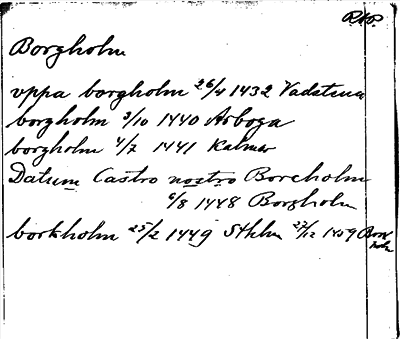 RAP.
Borgholm
vppa borgholm 26/4 1432 Vadstena
borgholm 3/10 1440 Arboga
borgholm 4/7 1441 Kalmar
Datum Castro nostro Borcholm
6/8 1448 Borgholm
borkholm 25/2 1449 Sthlm 22/12 1459 Bork
holm